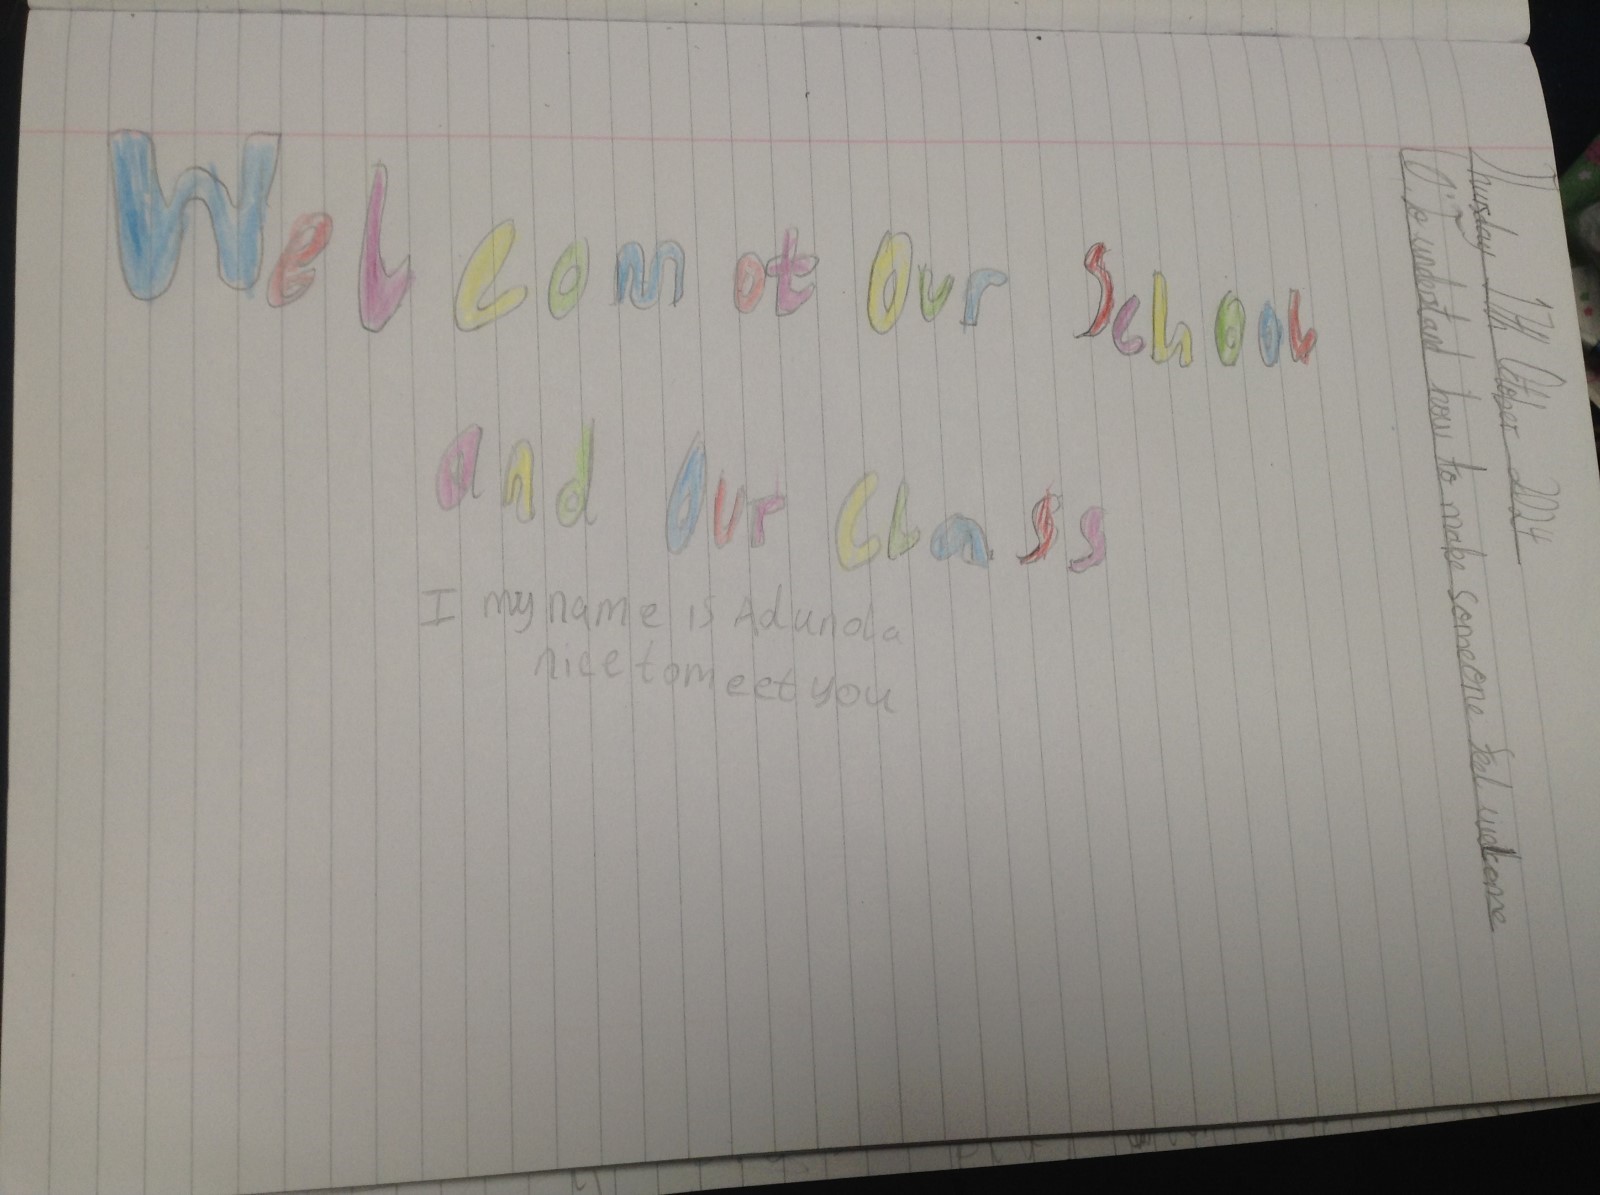 Thursday 17th October 2024
To understand how to make someone feel welcome
Welcom ot Our School
and Our Class
I my name is Adunola
nice to meet you